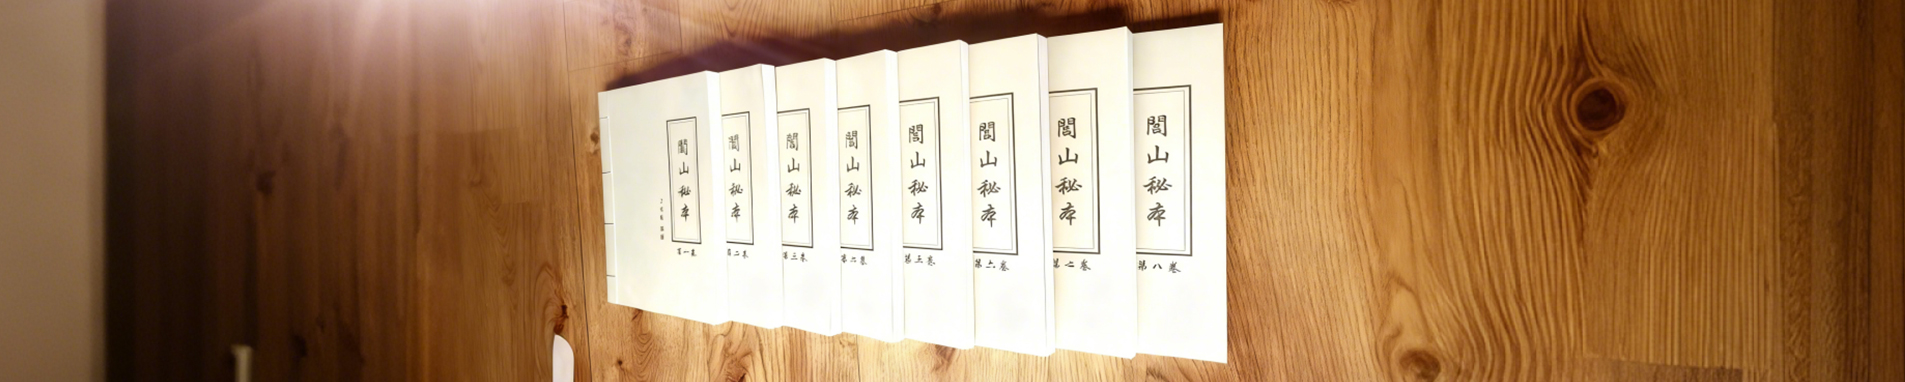 閭山秘本
第一卷
閭山秘本
第二卷
閭山秘本
第三卷
閭山秘本
閭山秘本
第五卷
閭山秘本
第六卷
閭山秘本
閭山秘本
第八卷